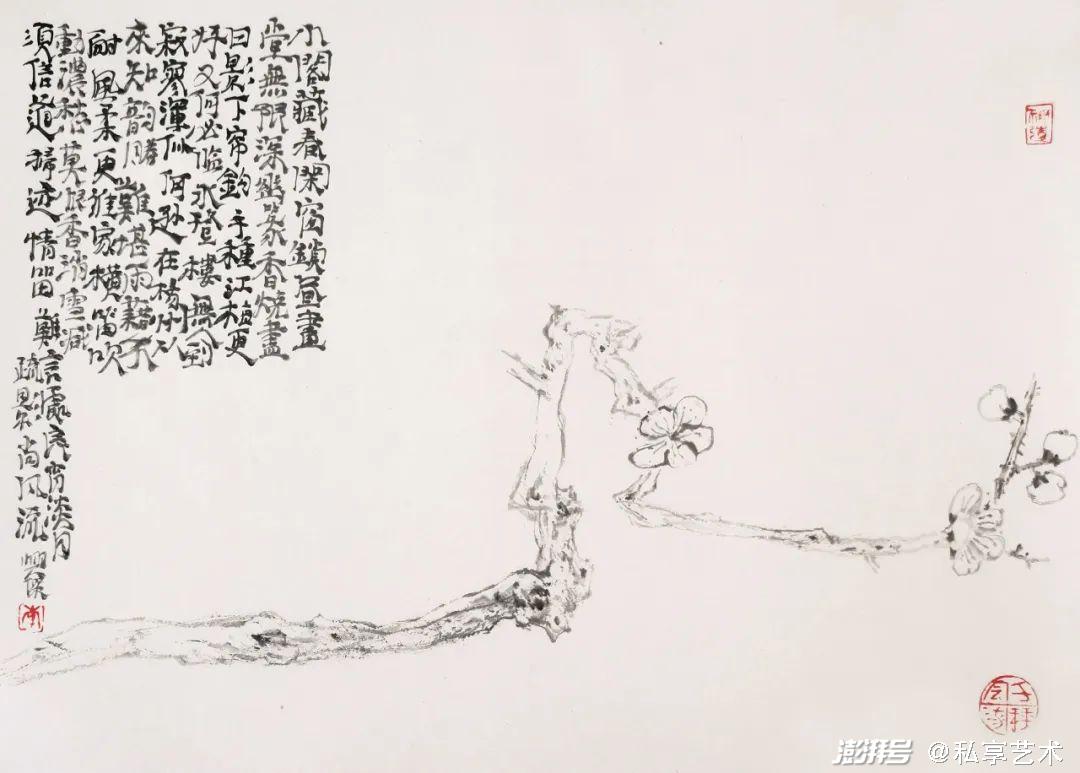 小閣藏春閑窗鎖昼畫
堂無限深幽篆香燒盡
日影下帘鈎手種江梅更
好又何必临水登樓無人到
寂寥渾似何遜在楊州從
來知韵勝難堪雨藉不
耐風柔更誰家横笛吹
動濃愁莫恨香消雪減
須信道掃迹情留難
言處良宵淡月
疏影尚風流
澎湃号 @私享艺术